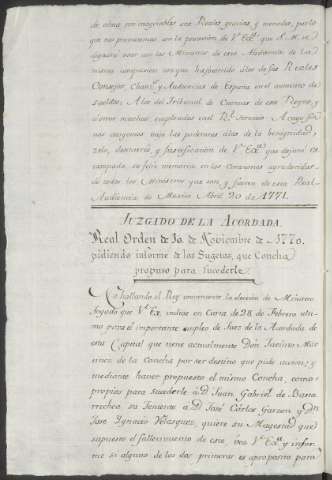 de alma por imaginables sus Reales gracias y mercedes, por lo
que nos prometemos con la proteccion de V.ª Ex.ª que S. M. se
dignará usar con los Ministros de esta Audiencia de la
misma compasion con que ha ocurrido á los de sus Reales
Consejos, Chanc.ˢ y Audiencias de España en el aumento de
sueldos; A los del Tribunal de Cuentas de este Reyno, y
á otros muchos empleados en el R.ˡ Servicio. Aseguran
nos consuno bajo las poderosas alas de la benignidad,
zelo, desinterés, y justificacion de V.ª Ex.ª que dejará es-
tampada su feliz memoria en los Corazones agradecidos
de todos los Ministros que son y fueren de esta Real
Audiencia de Mexico Abril 20 de 1771.
JUZGADO DE LA ACORDADA.
Real Orden de 10 de Noviembre de 1770.
pidiendo informe de los Sugetos, que Concha
propuso para sucederle.
No hallando el Rey conveniente la eleccion de Ministro
Togado que V.ª Ex. indica en Carta de 28 de Febrero ulti-
mo para el importante empleo de Juez de la Acordada de
esa Capital que tiene actualmente Don Jacinto Mar-
tinez de la Concha por ser destino que pide accion; y
mediante haver propuesto el mismo Concha, como
propios para sucederle á D. Juan Gabriel de Barra-
rrechea su Teniente á D. José Carlos Garzon y D.ⁿ
José Ignacio Velazquez, quiere su Magestad que
supuesto el fallecimiento de este, vea V.ª Ex.ª y infor-
me si alguno de los dos primeros es apropósito para